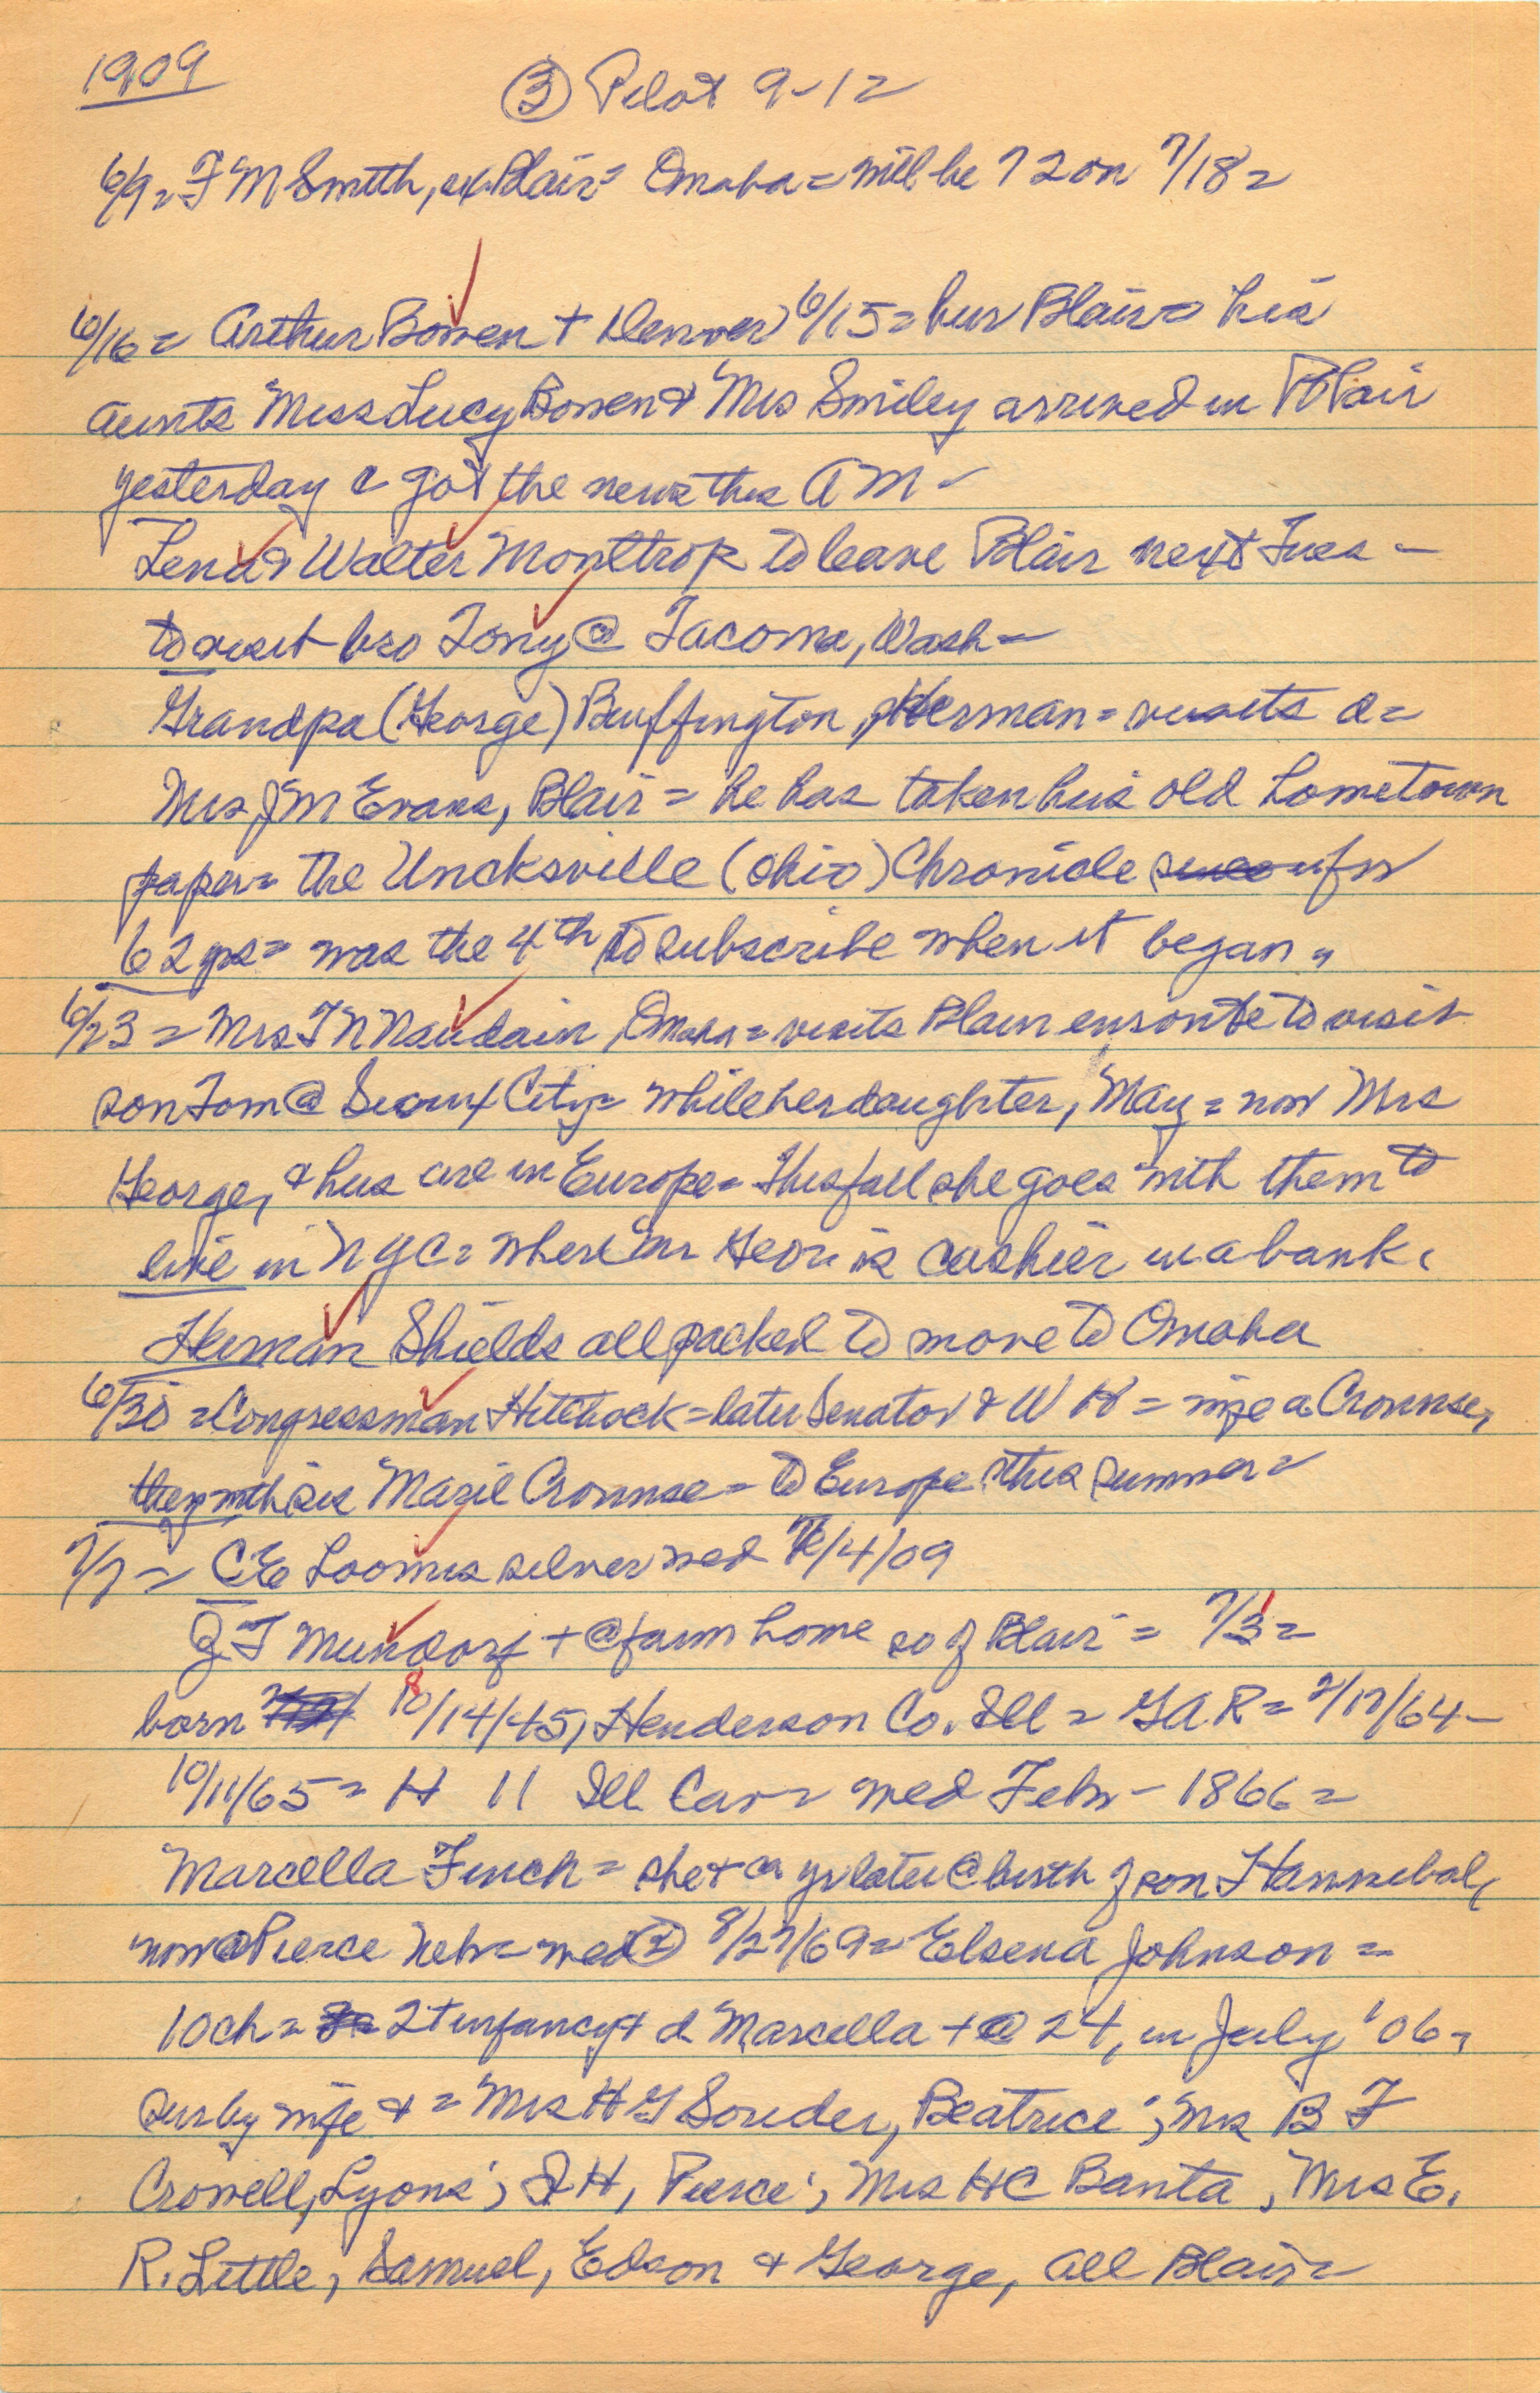 1909
③ Pilot 9-12
6/9= F M Smith, ex Blair= Omaha= will be 72 on 7/18=
6/16= Arthur Bowen + Denver 6/15= bur Blair= his
aunts Miss Lucy Bowen & Mrs Smiley arrived in Blair
yesterday & got the news this AM-
Lena & Walter Monttrop to leave Blair next Tues-
to visit bro Tony @ Tacoma, Wash=
Grandpa (George) Buffington, Herman= visits d=
Mrs J M Evans, Blair= he has taken his old hometown
paper= the Uncksville (Ohio) Chronicle for
62 yrs= was the 4th to subscribe when it began=
6/23= Mrs T N Naudain, Omaha= visits Blair enroute to visit
son Tom @ Sioux City= while her daughter, May= now Mrs
George, & hus are in Europe= This fall she goes with them to
live in NYC= where Mr Geor is cashier in a bank.
Herman Shields all packed to move to Omaha
6/30= Congressman Hitchock= later Senator & W H= wife a Crounse,
they with sis Marie Crounse= to Europe this summer=
7/7= C E Loomis silver wed 7/4/09
J. T Mundorf + @ farm home so of Blair= 7/3=
born 10/14/45, Henderson Co. Ill= GAR= 2/17/64-
10/11/65= H 11 Ill Cav= wed Feb- 1866=
Marcella Finch= she + a yr later @ birth of son Hannibal,
now @ Pierce Neb= wed ② 8/27/69= Elsena Johnson=
10 ch= 2 + infancy & d Marcella + @ 24, in July '06=
sur by wife & = Mrs H G Souder, Beatrice; Mrs B F
Crowell, Lyons; J H, Pierce; Mrs H C Banta, Mrs E.
R. Little, Samuel, Edson & George, all Blair=